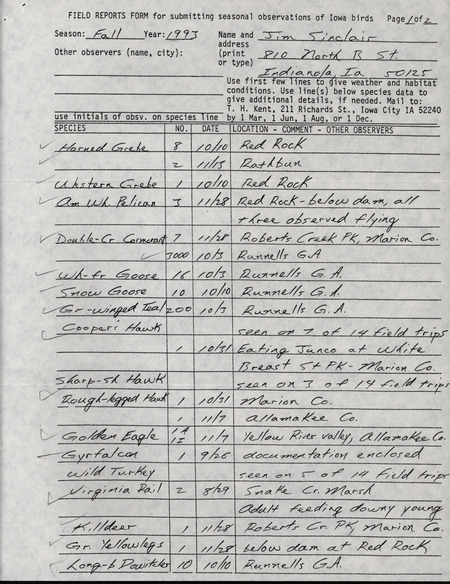 FIELD REPORTS FORM for submitting seasonal observations of Iowa birds Page 1 of 2
Season: Fall Year: 1993 Name and Jim Sinclair
address
Other observers (name, city): (print 810 North B St.
or type)
Indianola, Ia 50125
Use first few lines to give weather and habitat
conditions. Use line(s) below species data to
give additional details, if needed. Mail to:
T. H. Kent, 211 Richards St., Iowa City IA 52240
use initials of obsv. on species line by 1 Mar, 1 Jun, 1 Aug, or 1 Dec.
SPECIES NO. DATE LOCATION - COMMENT - OTHER OBSERVERS
Horned Grebe 8 10/10 Red Rock
2 11/13 Rathbun
Western Grebe 1 10/10 Red Rock
Am Wh Pelican 3 11/28 Red Rock - below dam, all
three observed flying
Double-Cr Cormorant 7 11/28 Roberts Creek PK, Marion Co.
3000 10/3 Runnells G.A
Wh-fr Goose 16 10/3 Runnells G. A.
Snow Goose 10 10/10 Runnells G. A.
Gr-winged Teal 200 10/3 Runnells G. A.
Cooperi Hawk seen on 7 of 14 field trips
1 10/31 Eating Junco at White
Breast St PK - Marion Co.
Sharp-sh Hawk seen on 3 of 14 field trips
Rough-legged Hawk 1 10/31 Marion Co.
1 11/7 Allamakee Co.
Golden Eagle 1A 1I 11/7 Yellow River valley, Allamakee Co.
Gyrfalcon 1 9/26 documentation enclosed
Wild Turkey seen on 5 of 14 field trips
Virginia Rail 2 8/29 Snake Cr. Marsh
Adult feeding downy young
Killdeer 1 11/28 Roberts Cr. PK, Marion Co.
Gr. Yellowlegs 1 11/28 below dam at Red Rock
Long-b Dowitcher 10 10/10 Runnells G.A.